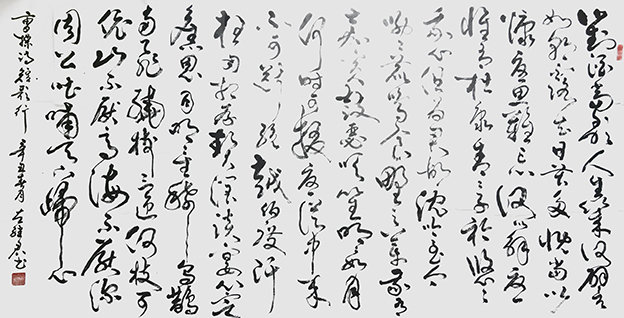 對酒當歌人生幾何譬
如朝露去日苦多慨當以
慷憂思難忘何以解憂
惟有杜康青青子衿悠悠
我心但為君故沉吟至今
呦呦鹿鳴食野之蘋我有
嘉賓鼓瑟吹笙明明如月
何時可掇憂從中來
不可斷絕越陌度阡
枉用相存契闊談讌心念
舊恩月明星稀烏鵲
南飛繞樹三匝何枝可
依山不厭高海不厭深
周公吐哺天下歸心
曹操詩短歌行 辛丑春月